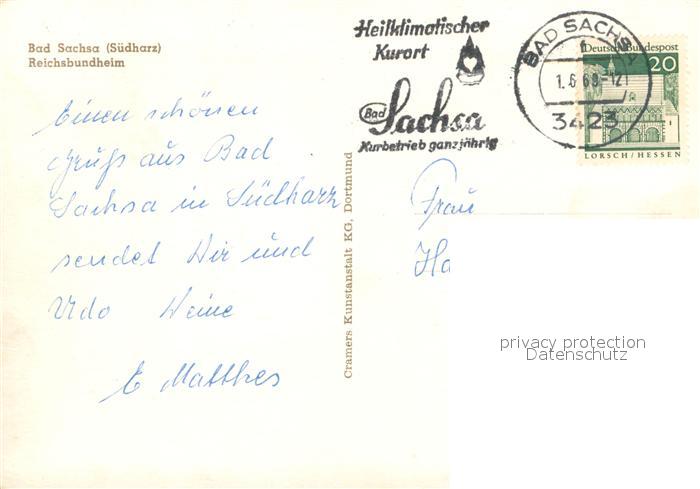 Bad Sachsa (Südharz)
Reichsbundheim
Einen schönen
Gruß aus Bad
Sachsa in Südharz
sendet Dir und
Udo Deine
E Matthes
Cramers Kunstanstalt KG, Dortmund
Heilklimatischer
Kurort
Bad
Sachsa
Kurbetrieb ganzjährig
BAD SACHSA
f
1.6.69-12
3423
Deutsche Bundespost
20
LORSCH/HESSEN
Frau
Ha
privacy protection
Datenschutz